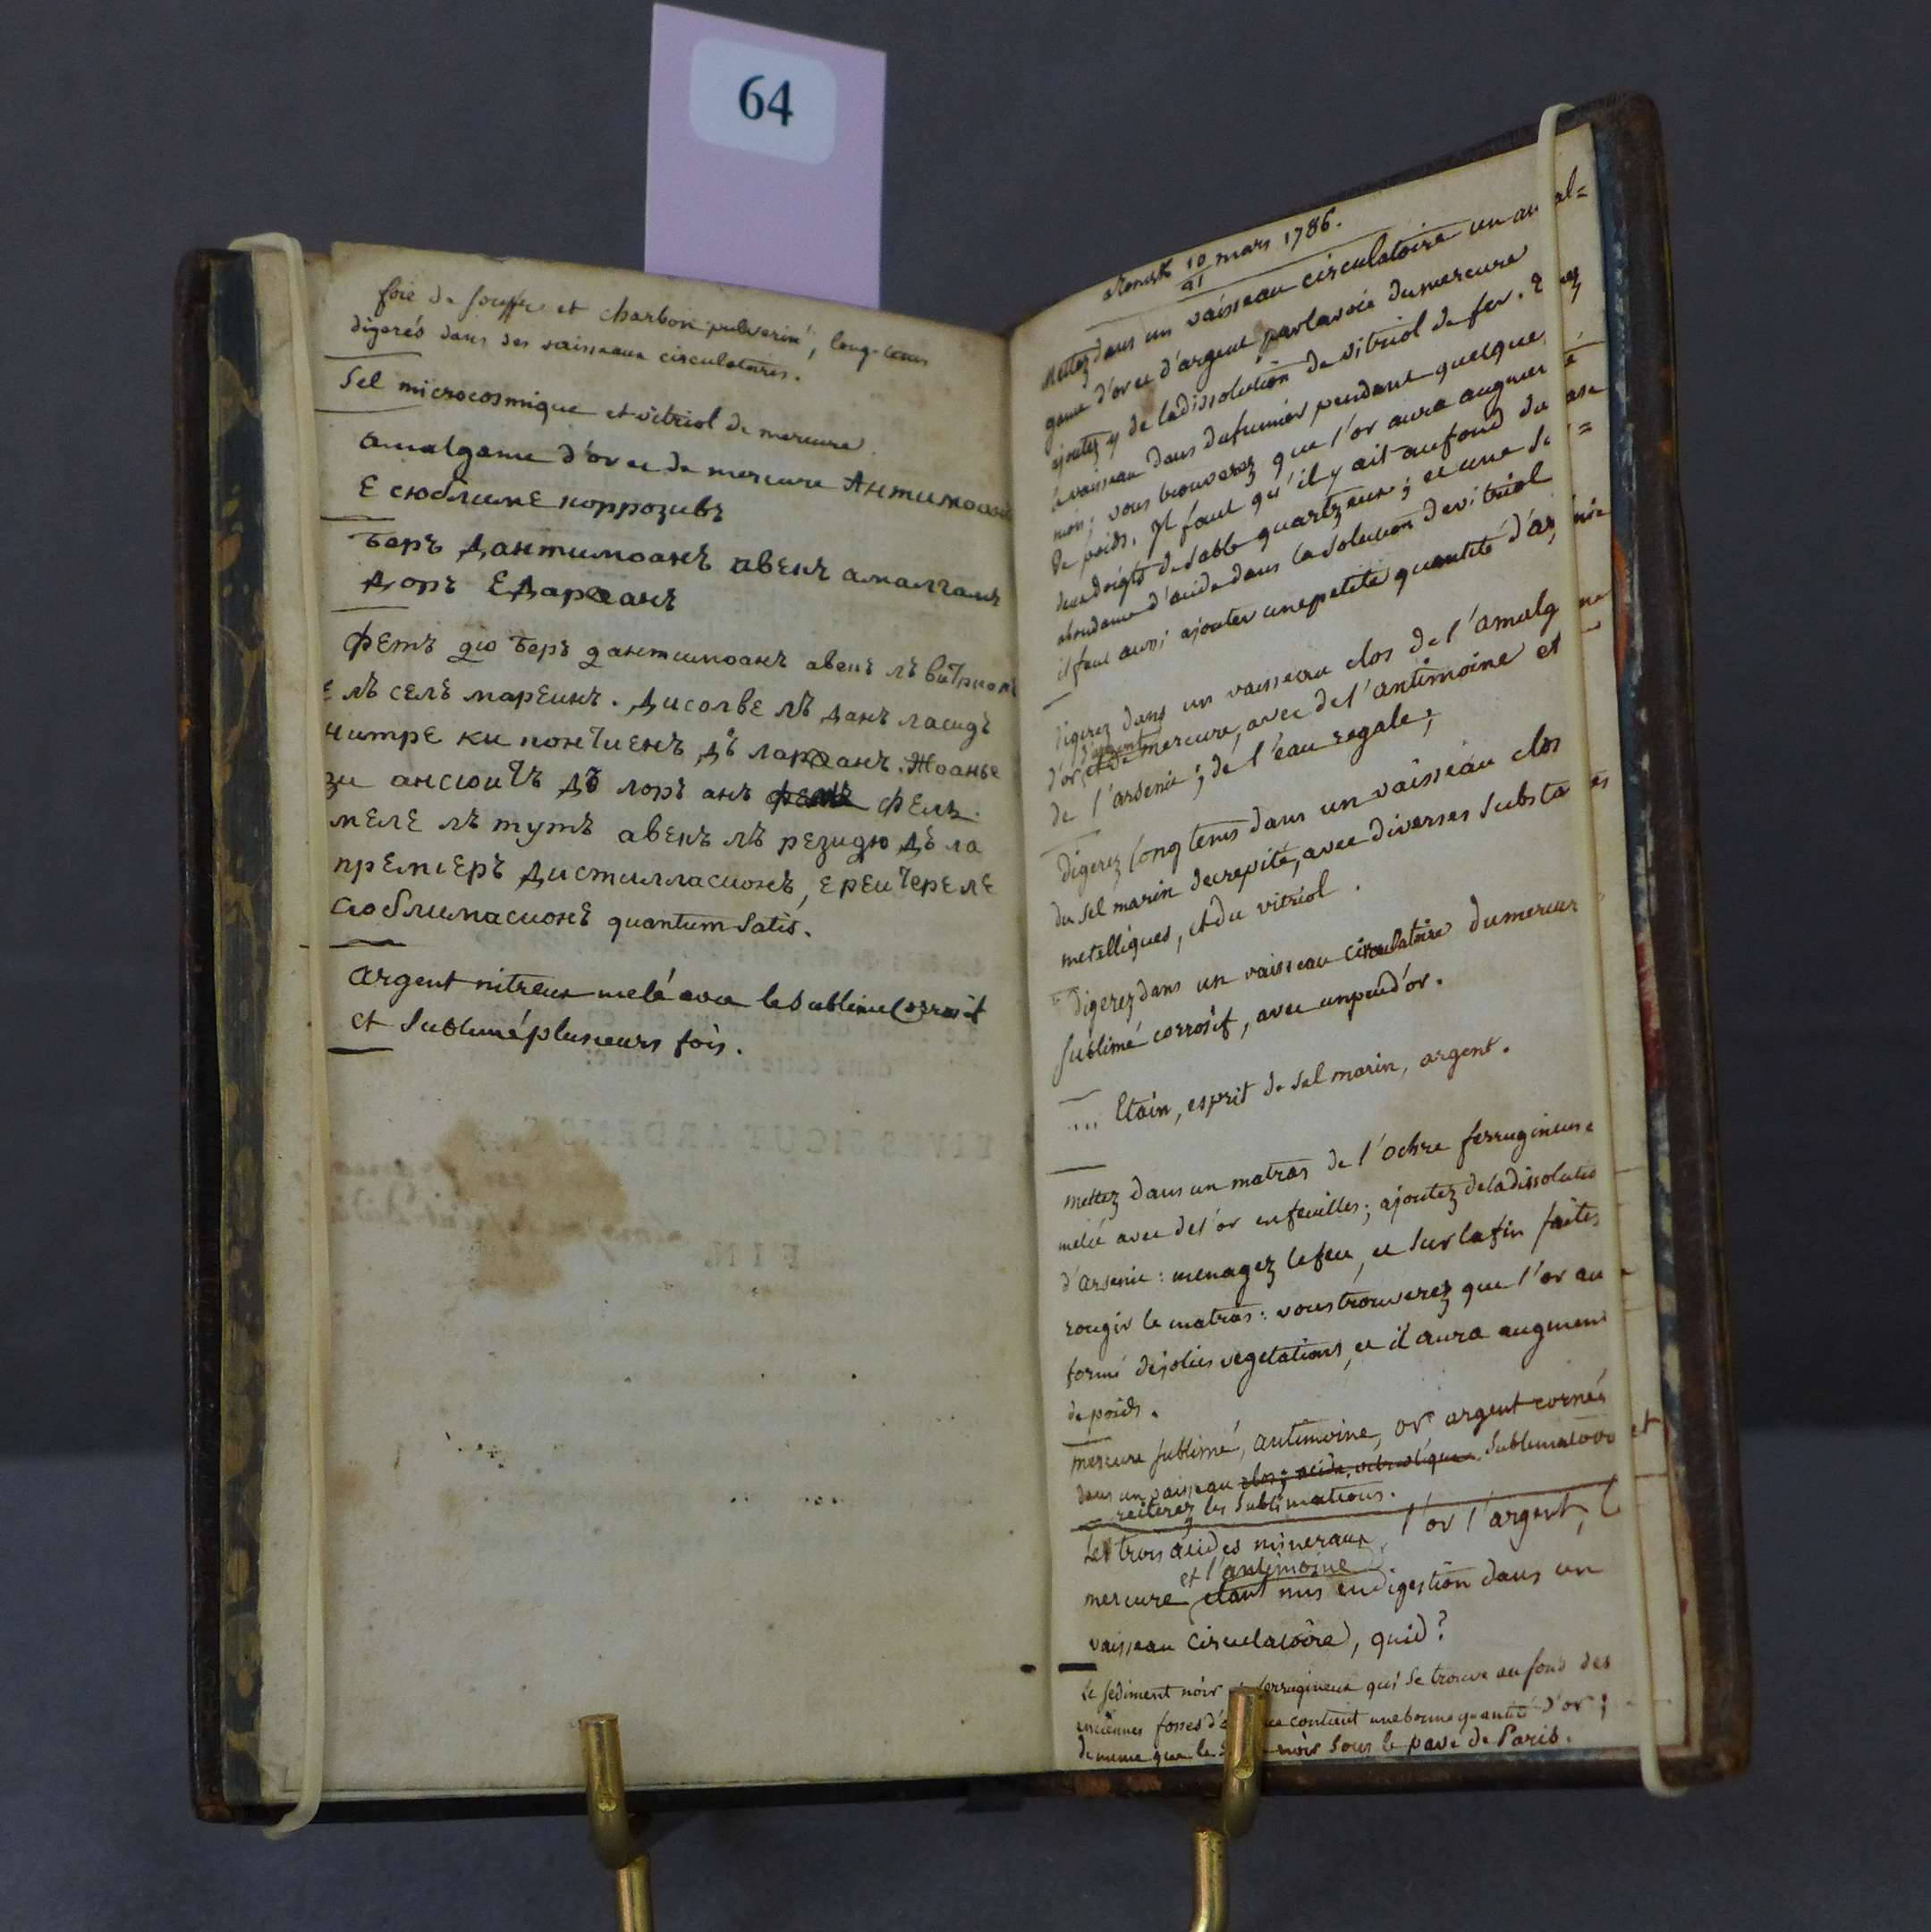 64
foie de souffre et charbon pulverisé, long-tems
digerés dans des vaisseaux circulatoires.
Sel microcosmique et vitriol de mercure
amalgame d'or et de mercure Антимоанъ
Е сюблиме коррозивъ
Беръ Дантимоанъ авекъ амалгамъ
Доръ Е Даржанъ
Фетъ дю беръ дантимоанъ авекъ лъ витриолъ
Е лъ селъ мареинъ. Дисолве лъ данъ ласидъ
нитре ки контиенъ дъ ларжанъ. Жоанье
зи ансюитъ дъ лоръ анъ фелъ.
меле лъ тутъ авекъ лъ резидю дъ ла
премиеръ дистилласионъ, е реитере ле
сюблимасионъ quantum satis.
argent nitreux melé avec le sublimé Corrosif
et sublimé plusieurs fois.
10 mars 1786.
21
Mettez dans un vaisseau circulatoire un amal=
game d'or et d'argent par la voie du mercure
ajoutez y de la dissolution de vitriol de fer.
le vaisseau dans du fumier pendant quelque
mois; vous trouverez que l'or aura augmenté
de poids. Il faut qu'il y ait au fond du vase
deux doigts de sable quartzeux; et une
abondance d'acide dans la solution de vitriol
il faut aussi ajouter une petite quantité d'arsenic
digerez dans un vaisseau clos de l'amalgame
d'argent
d'or et de mercure, avec de l'antimoine et
de l'arsenic; de l'eau regale;
digerez long tems dans un vaisseau clos
du sel marin decrepité, avec diverses substances
metalliques, et du vitriol.
digerez dans un vaisseau circulatoire du mercure
sublimé corrosif, avec un peu d'or.
... Etain, esprit de sel marin, argent.
mettez dans un matras de l'ochre ferrugineuse
melée avec de l'or en feuilles; ajoutez de la dissolution
d'arsenic: menagez le feu, et sur la fin faites
rougir le matras: vous trouverez que l'or aura
formé de jolies vegetations, et il aura augmenté
de poids.
mercure sublimé, antimoine, or, argent cornés
dans un vaisseau clos; acide vitriolique. Sublimatoire et
reiterez les sublimations.
Les trois acides mineraux, l'or l'argent, le
et l'antimoine
mercure etant mis en digestion dans un
vaisseau circulatoire, quid?
le sediment noir et ferrugineux qui se trouve au fond des
anciennes fosses contient une bonne quantité d'or;
de meme que le noir sous le pavé de Paris.